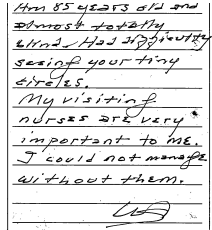 I'm 85 years old and
almost totally
blind. Had difficulty
seeing your tiny
circles.
My visiting
nurses are very
important to me.
I could not manage
without them.